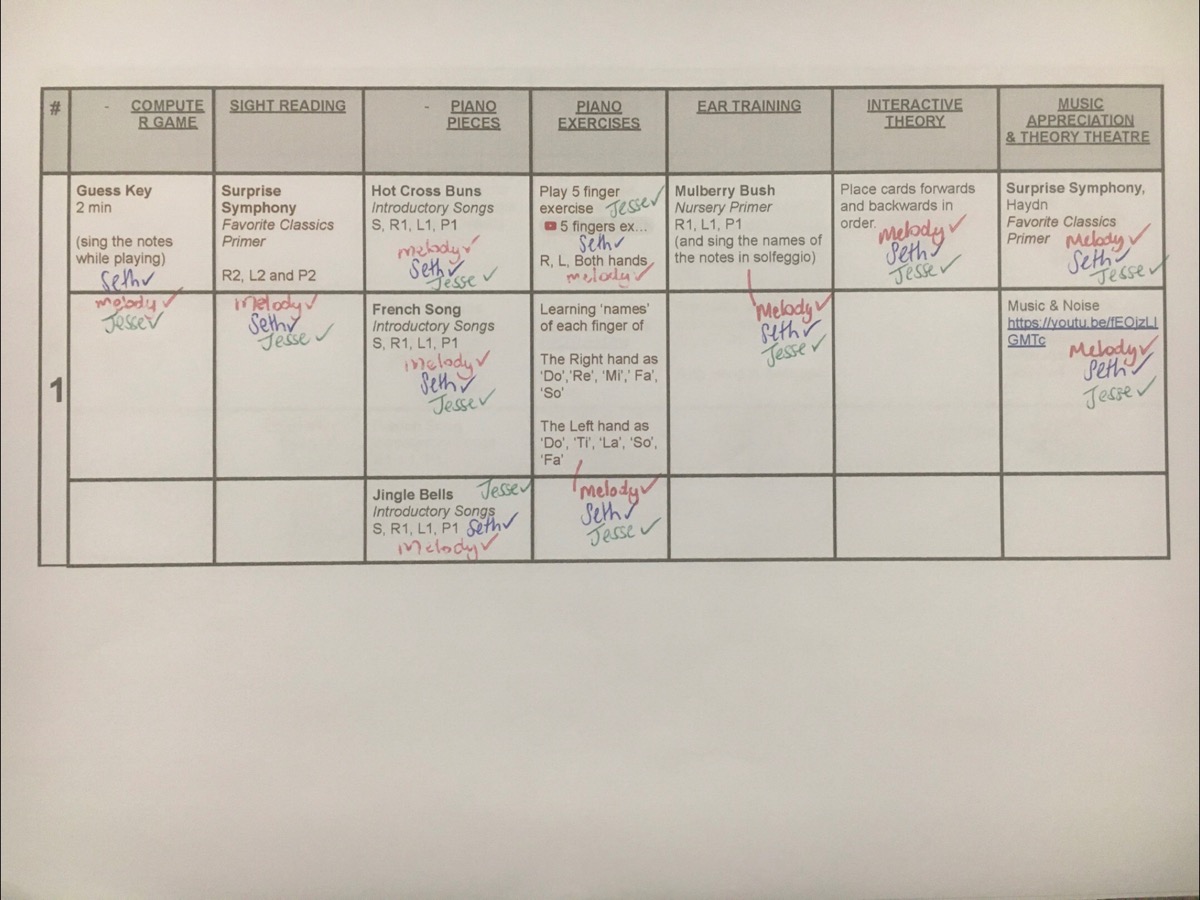 #
- COMPUTE
R GAME
SIGHT READING
- PIANO
PIECES
PIANO
EXERCISES
EAR TRAINING
INTERACTIVE
THEORY
MUSIC
APPRECIATION
& THEORY THEATRE
1
Guess Key
2 min
(sing the notes
while playing)
Seth✓
melody ✓
Jesse✓
Surprise
Symphony
Favorite Classics
Primer
R2, L2 and P2
melody ✓
Seth✓
Jesse ✓
Hot Cross Buns
Introductory Songs
S, R1, L1, P1
melody ✓
Seth✓
Jesse ✓
Play 5 finger
exercise Jesse✓
5 fingers ex...
Seth✓
R, L, Both hands
melody ✓
Mulberry Bush
Nursery Primer
R1, L1, P1
(and sing the names of
the notes in solfeggio)
Melody✓
Seth✓
Jesse✓
Place cards forwards
and backwards in
order. melody ✓
Seth✓
Jesse✓
Surprise Symphony,
Haydn
Favorite Classics
Primer Melody ✓
Seth✓
Jesse✓
French Song
Introductory Songs
S, R1, L1, P1
melody✓
Seth✓
Jesse ✓
Learning ‘names’
of each finger of
The Right hand as
‘Do’,‘Re’, ‘Mi’,‘ Fa’,
‘So’
The Left hand as
‘Do’, ‘Ti’, ‘La’, ‘So’,
‘Fa’
melody✓
Seth✓
Jesse ✓
Music & Noise
https://youtu.be/fEOjzLI
GMTc
Melody✓
Seth✓
Jesse✓
Jingle Bells Jesse✓
Introductory Songs
S, R1, L1, P1 Seth✓
Melody✓